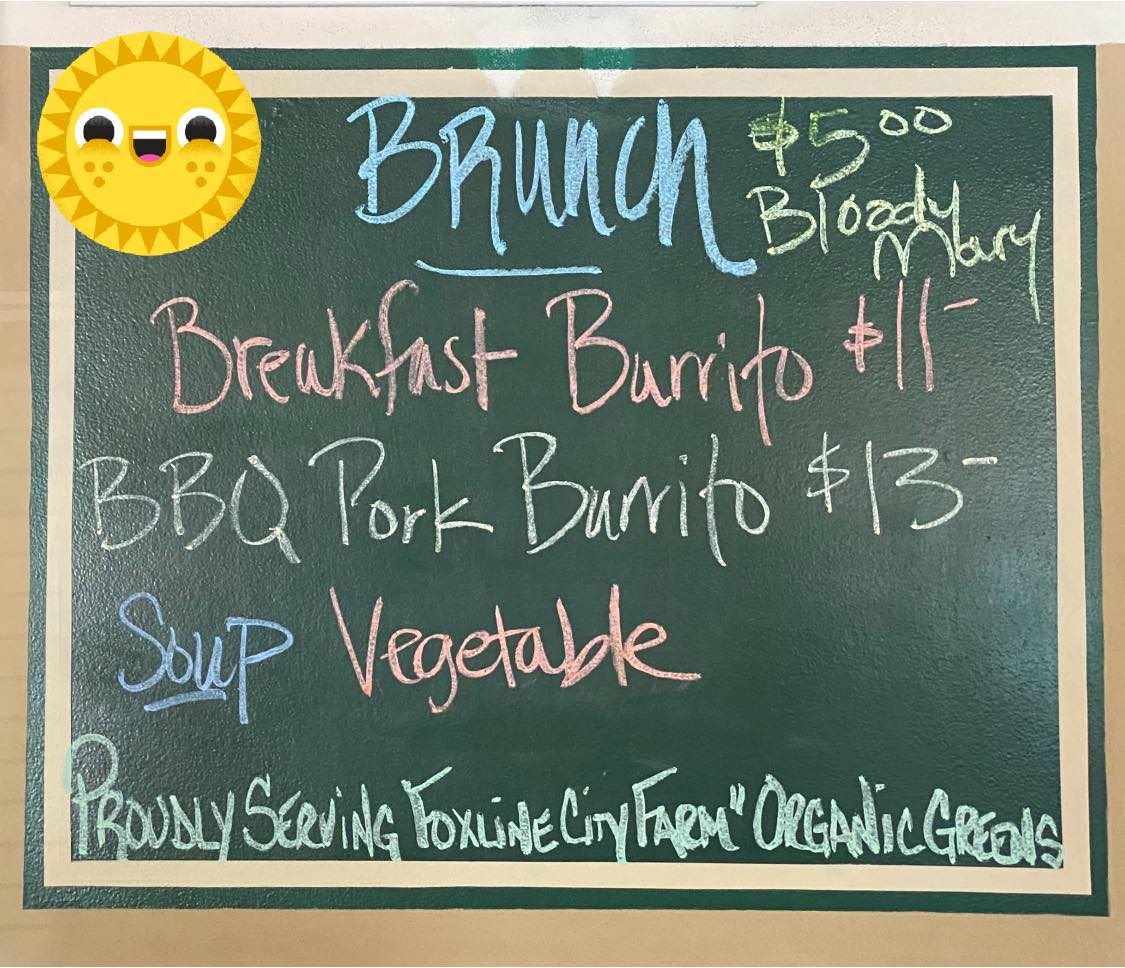 BRUNCH
$5.00
Bloody
Mary
Breakfast Burrito $11-
BBQ Pork Burrito $13-
Soup Vegetable
PROUDLY SERVING FOXLINE CITY FARM" ORGANIC GREENS